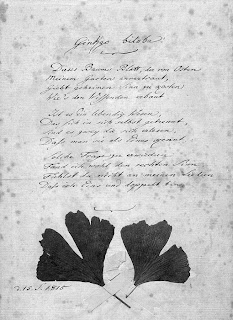 Ginkgo biloba
Dieses Baums Blatt, der von Osten
Meinem Garten anvertraut,
Giebt geheimen Sinn zu kosten
Wie's den Wissenden erbaut.
Ist es Ein lebendig Wesen?
Das sich in sich selbst getrennt,
Sind es zwey? die sich erlesen,
Dass man sie als Eines kennt.
Solche Frage zu erwiedern
Fand ich wohl den rechten Sinn;
Fühlst du nicht an meinen Liedern
Dass ich Eins und doppelt bin?
d. 15. S. 1815